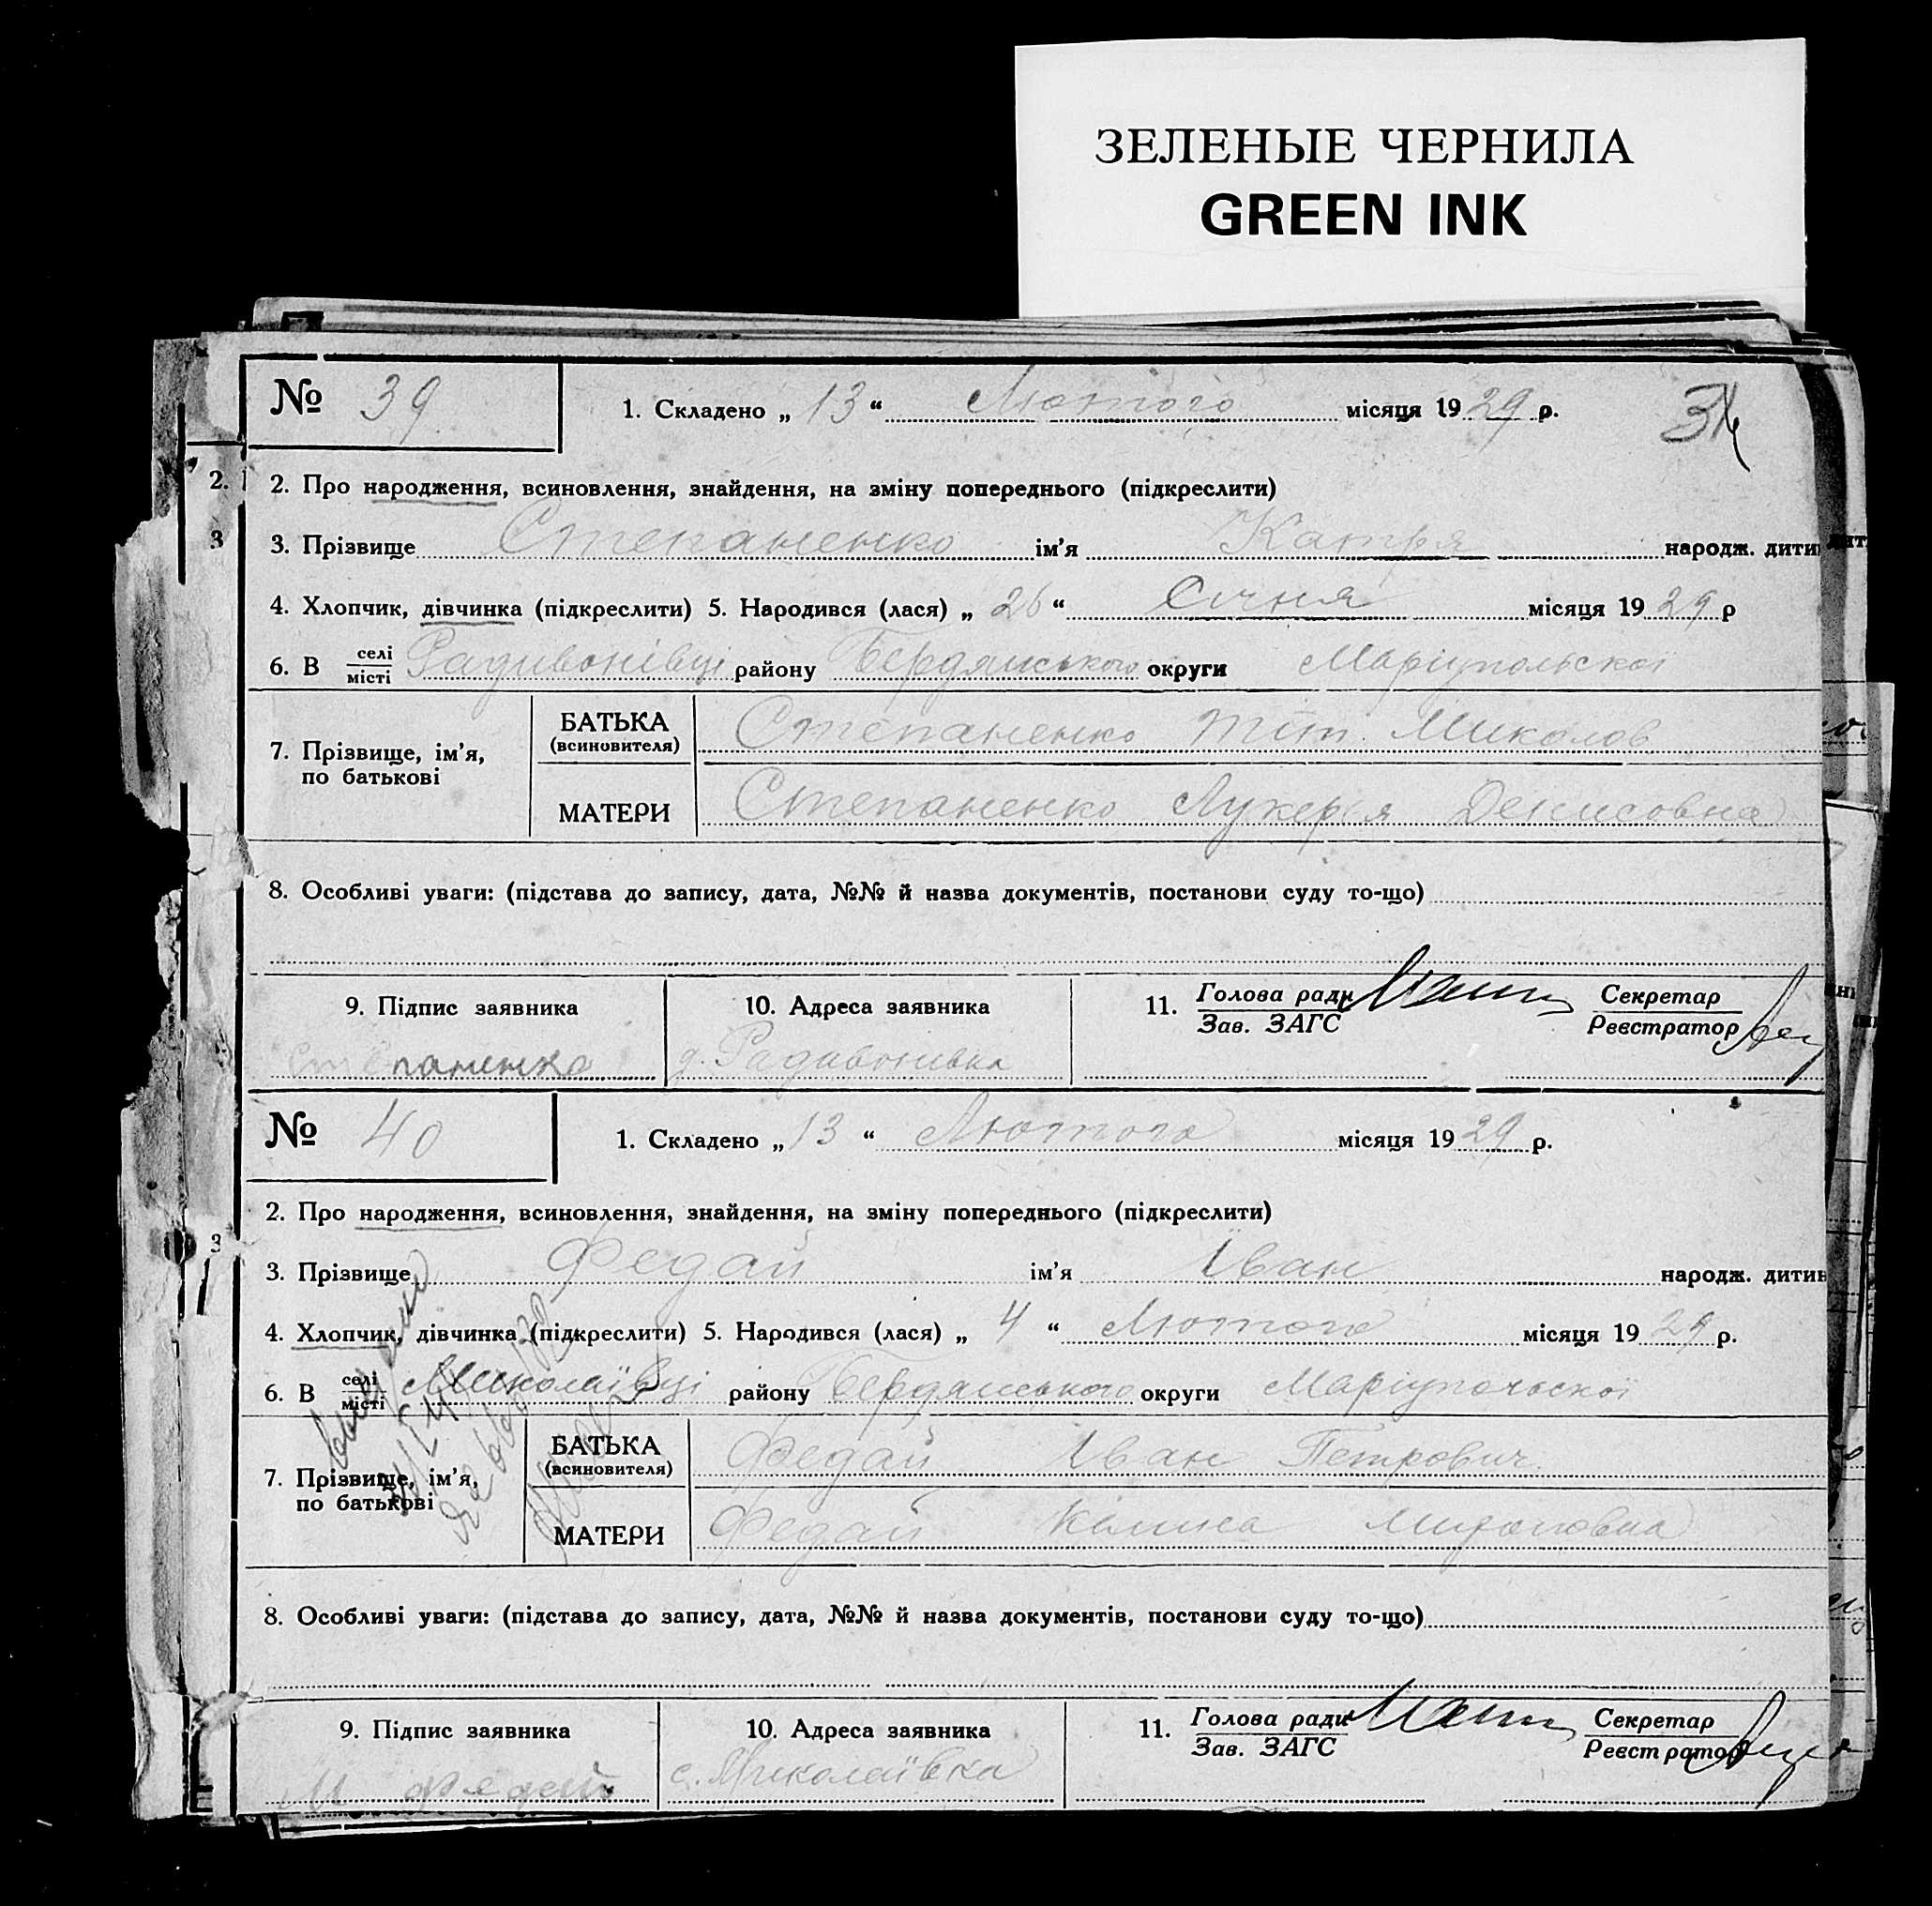 ЗЕЛЕНЫЕ ЧЕРНИЛА
GREEN INK
№ 39
1. Складено „ 13 “ Лютого місяця 1929 р.
2. Про народження, всиновлення, знайдення, на зміну попереднього (підкреслити)
3. Прізвище Степаненко ім’я Катря народж. дити
4. Хлопчик, дівчинка (підкреслити) 5. Народився (лася) „ 26 “ Січня місяця 1929 р
6. В селі місті Радивонівці району Бердянського округи Маріупольскої
7. Прізвище, ім’я, по батькові
БАТЬКА (всиновителя) Степаненко Тіт Миколов
МАТЕРИ Степаненко Лукер'я Денисовна
8. Особливі уваги: (підстава до запису, дата, №№ й назва документів, постанови суду то-що)
9. Підпис заявника 10. Адреса заявника 11. Голова ради Зав. ЗАГС Секретар Реєстратор
Степаненко д. Радивонівка
№ 40
1. Складено „ 13 “ Лютого місяця 1929 р.
2. Про народження, всиновлення, знайдення, на зміну попереднього (підкреслити)
3. Прізвище Федай ім’я Іван народж. дитин
4. Хлопчик, дівчинка (підкреслити) 5. Народився (лася) „ 4 “ Лютого місяця 1929 р.
6. В селі місті Миколаївці району Бердянського округи Маріупольскої
7. Прізвище, ім’я, по батькові
БАТЬКА (всиновителя) Федай Іван Петрович
МАТЕРИ Федай
8. Особливі уваги: (підстава до запису, дата, №№ й назва документів, постанови суду то-що)
9. Підпис заявника 10. Адреса заявника 11. Голова ради Зав. ЗАГС Секретар Реєстратор
Федай с. Миколаївка